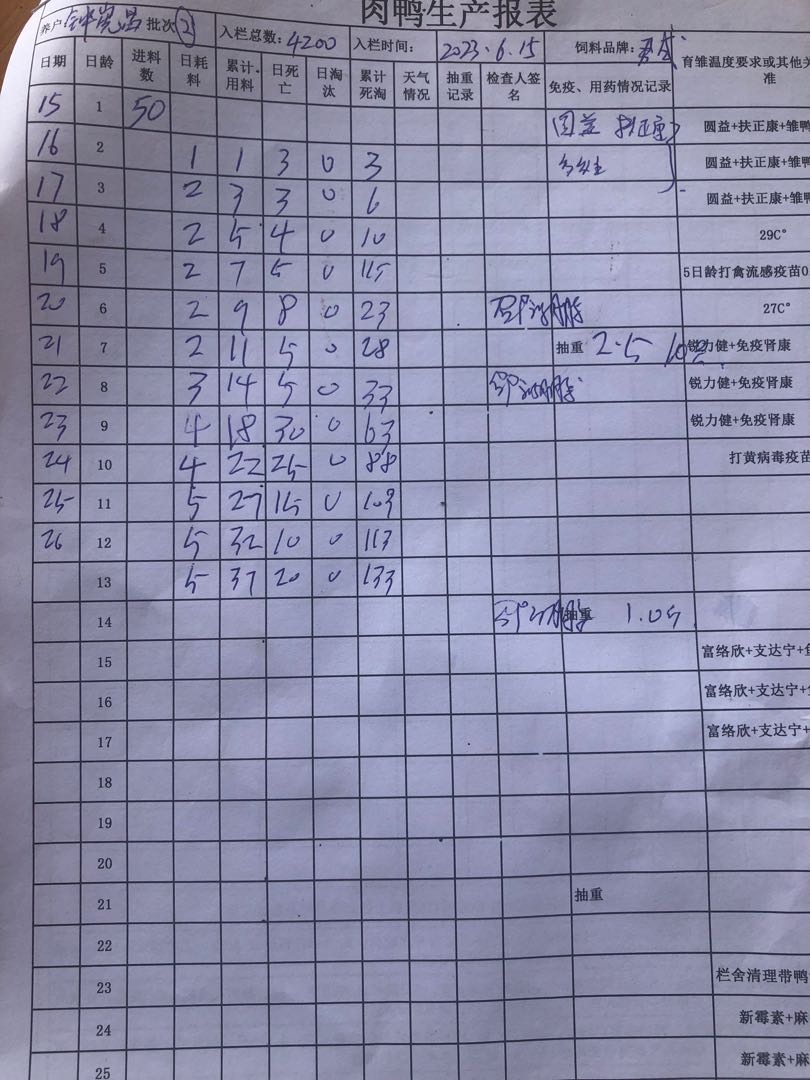 肉鸭生产报表
养户 批次② 入栏总数:4200 入栏时间: 2023.6.15 饲料品牌:
日期 日龄 进料数 日耗料 累计用料 日死亡 日淘汰 累计死淘 天气情况 抽重记录 检查人签名 免疫、用药情况记录 育雏温度要求或其他关 准
15 1 50 圆益 扶正康 圆益+扶正康+雏鸭
16 2 1 1 3 0 3 多维 圆益+扶正康+雏鸭
17 3 2 3 3 0 6 圆益+扶正康+雏鸭
18 4 2 5 4 0 10 29C°
19 5 2 7 5 0 15 5日龄打禽流感疫苗0
20 6 2 9 8 0 23 27C°
21 7 2 11 5 0 28 抽重 2.5 锐力健+免疫肾康
22 8 3 14 5 0 33 锐力健+免疫肾康
23 9 4 18 30 0 63 锐力健+免疫肾康
24 10 4 22 25 0 88 打黄病毒疫苗
25 11 5 27 15 0 103
26 12 5 32 10 0 113
13 5 37 20 0 133
14 抽重 1.05
15 富络欣+支达宁+鱼
16 富络欣+支达宁+
17 富络欣+支达宁+
18
19
20
21 抽重
22
23 栏舍清理带鸭
24 新霉素+麻
25 新霉素+麻